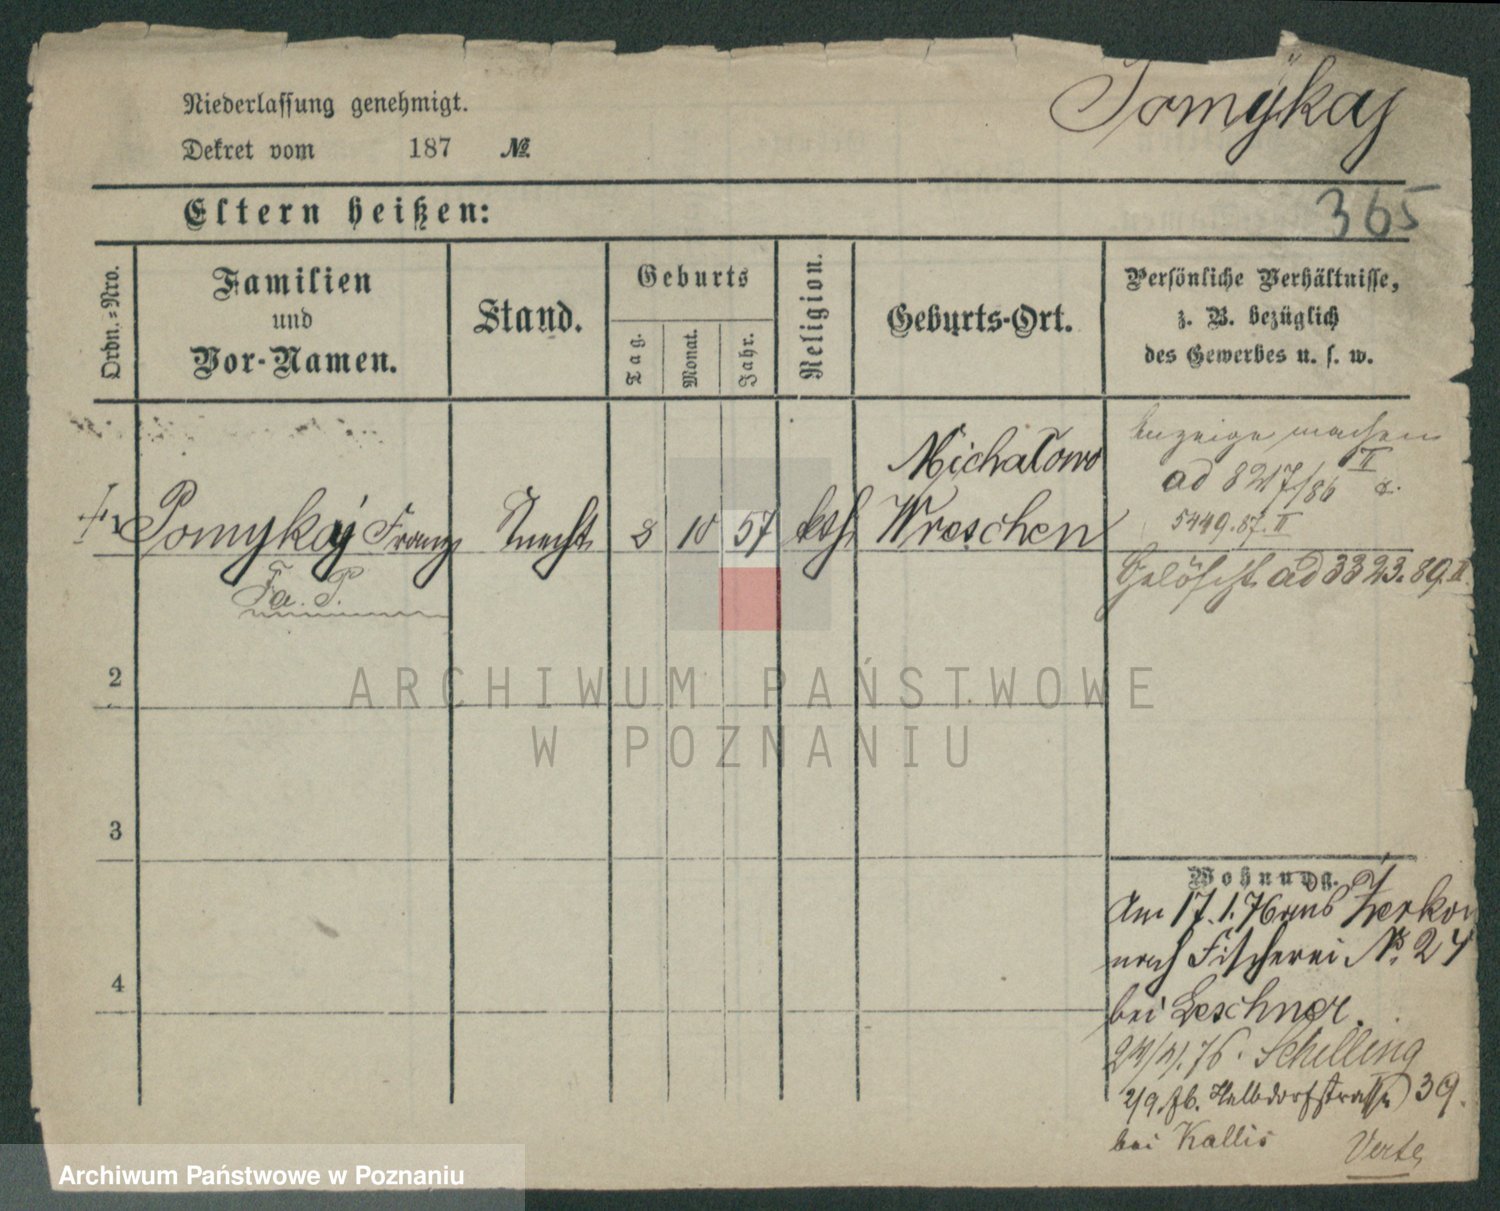 Pomykaj
Niederlassung genehmigt.
Dekret vom 187 №
365
Eltern heißen:
Ordn.-Nro.
Familien
und
Vor-Namen.
Stand.
Geburts
Tag.
Monat.
Jahr.
Religion.
Geburts-Ort.
Persönliche Verhältnisse,
z. B. bezüglich
des Gewerbes u. s. w.
Anzeige machen
ad 8217/86 II
5449.87.II
Michałowo
1 Pomykaj Franz Knecht 8 10 57 kth. Wreschen
Gelöscht ad 3323.89.II
Fa. P.
2
3
4
Wohnung.
Am 17.1.76 aus Zerkow
nach Fischerei № 24
bei Leschner.
Schilling
2/9.76. Halbdorfstrasse 39.
bei Kallis
Verte
ARCHIWUM PAŃSTWOWE
W POZNANIU
Archiwum Państwowe w Poznaniu